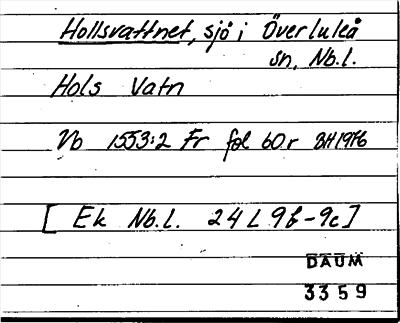 Hollsvattnet, sjö i Överluleå
sn, Nb.l.
Hols Vatn
Vb 1553:2 Fr fol 60r BH 1976
[ Ek Nb.l. 24 L 9b-9c ]
DAUM
3359